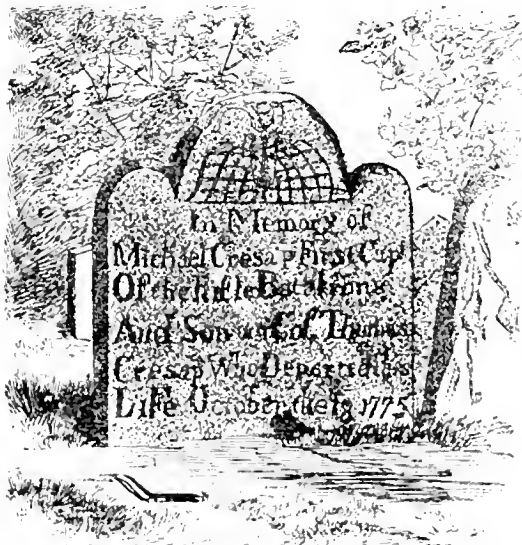 In Memory of
Michael Cresap First Cap'
Of the Rifle Batalions
And Son to Col. Thomas
Cresap Who Departed this
Life October the 18 1775